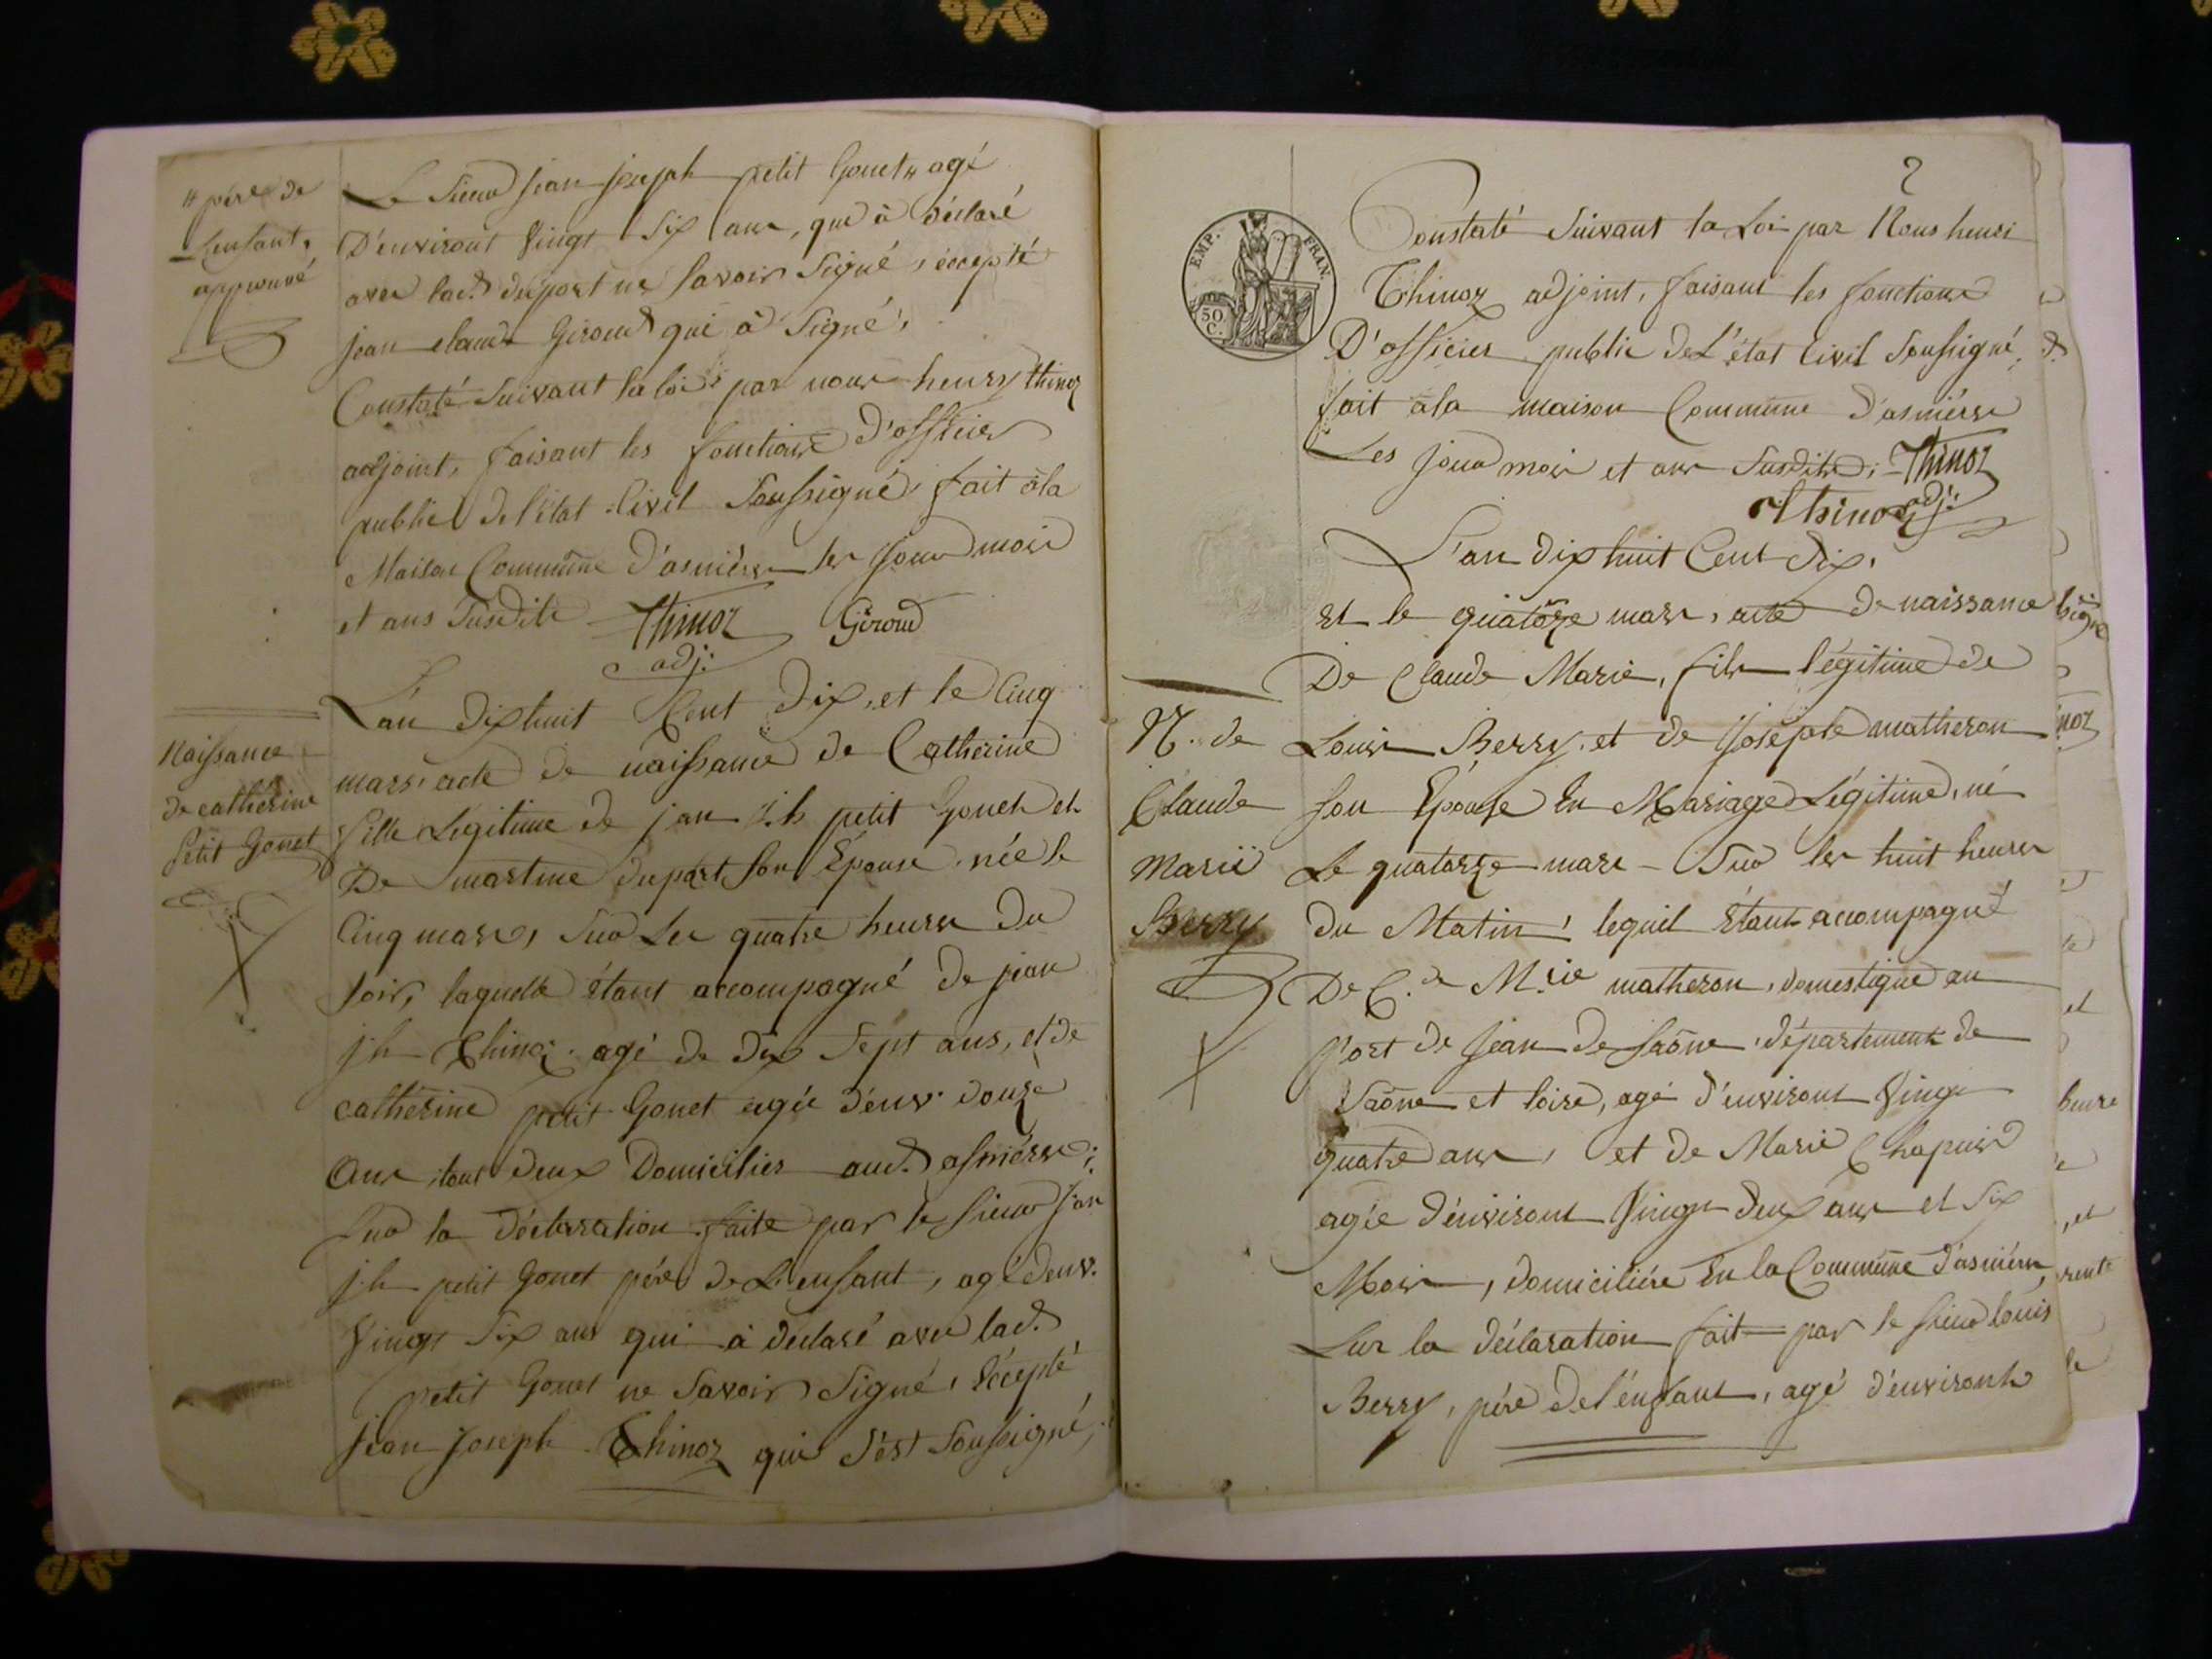 # père de
Lenfant,
approuvé
Le Sieur Jean joseph petit Gonet # agé
D'environt Vingt Six ans, qui à déclaré
avec lad. duport ne Savoir Signé, éccepté
jean claude Giroud qui à Signé,
Constaté Suivant la loi par nous henry thinoz
adjoint, faisant les fonctions D'officier
public de l'état Civil Soussigné, fait à la
Maison Commune D'asnières les jour mois
et ans Susdits Thinoz Giroud
adj:
Naissance
de cathérine
petit Gonet
L'an dix huit Cent dix, et le Cinq
mars, acte de naissance de Cathérine
fille Légitime de jean j.h petit Gonet et
De martine duport Son Épouse, née le
Cinq mars, Sur Les quatre heures du
Soir, laquelle étant accompagné de jean
j.h Thinoz agé de dix Sept ans, et de
cathérine petit Gonet agée d'env. douze
ans, tout deux Domiciliés aud. asnières;
Sur la déclaration faite par le sieur jean
j.h petit Gonet père de L'enfant, agé d'env.
Vingt Six ans qui à déclaré avec lad.
petit Gonet ne Savoir Signé, éccepté
jean joseph Thinoz qui S'est Soussigné,
2
EMP. FRAN.
50
C.
Constaté Suivant la Loi par Nous henri
Thinoz adjoint, faisant les fonctions
D'officier public de L'état Civil Soussigné,
fait à la maison Commune d'asnières
Les jour mois et ans Susdits, Thinoz
Thinoz adj:
L'an dix huit Cent dix,
et le quatorze mars, acte de naissance
De Claude Marie, fils légitime de
N. de
Claude
Marie
Berry
Louis Berry, et de Joséphte matheron
Son Épouse En Mariage Légitime, né
Le quatorze mars Sur les huit heures
du Matin, lequel étant accompagné
De C.de M.rie matheron, domestique au
Port de Jean de Saône, département de
Saône et loire, agé d'environt Vingt
quatre ans, et de Marie Chapuis
agée d'environt Vingt deux ans et Six
Mois, domicilière En la Commune d'asnières,
Sur la déclaration fait par le Sieur louis
Berry, père de l'enfant, agé d'environt